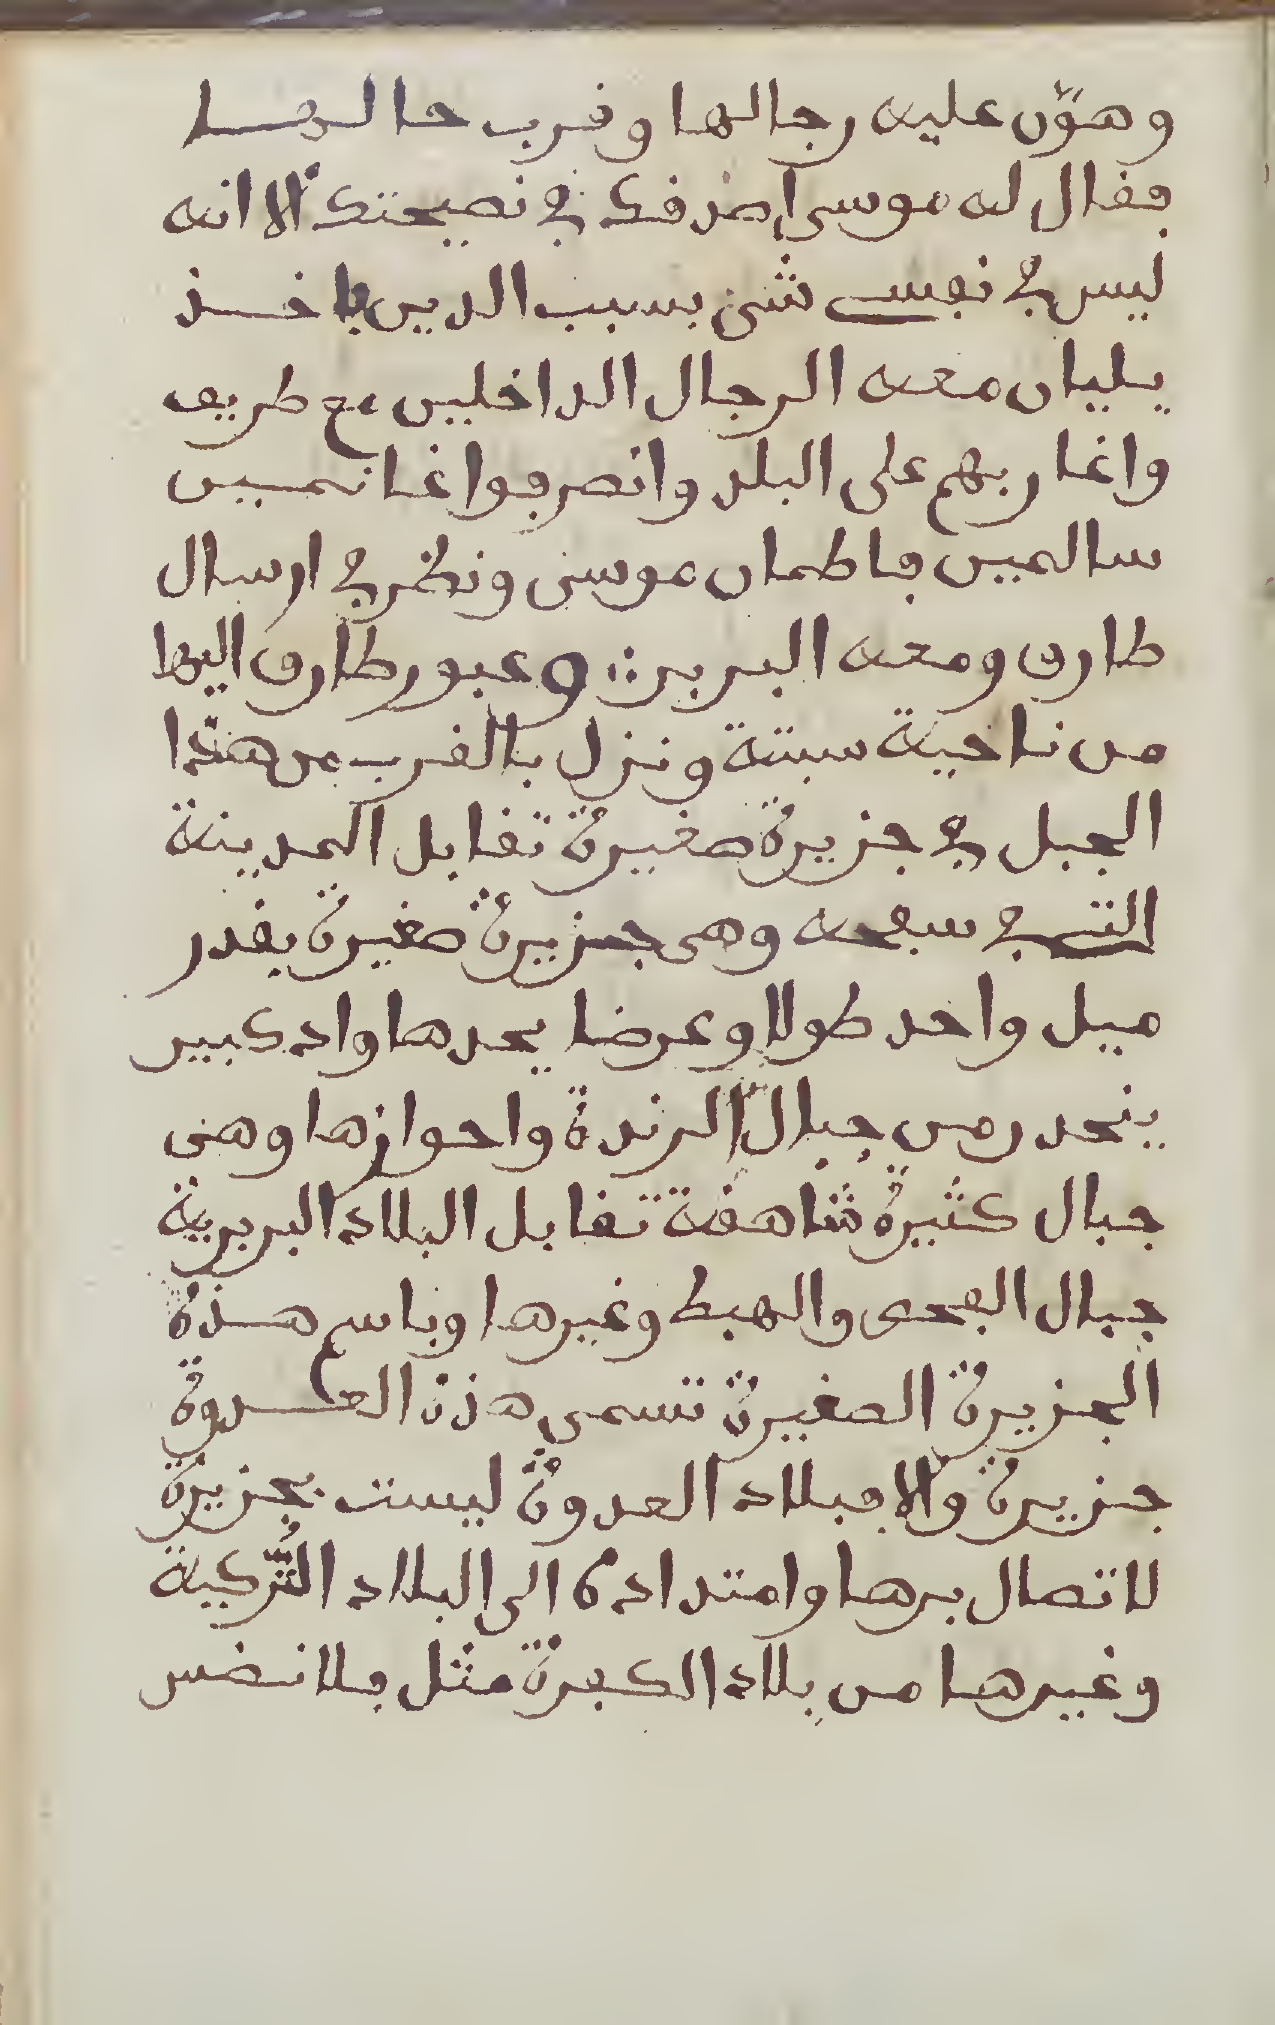 وهوّن عليه رجالها وقرب حالها
فقال له موسى اصدقك في نصيحتك الا انه
ليس في نفسي شيء بسبب الدين ياخذ
يليان معه الرجال الداخلين مع طريف
واغار بهم على البلد وانصرفوا غانمين
سالمين فاطمان موسى ونظر في ارسال
طارق ومعه البربر ∴ وعبور طارق اليها
من ناحية سبتة ونزل بالقرب من هذا
الجبل في جزيرة صغيرة تقابل المدينة
التي في سفحه وهي جزيرة صغيرة بقدر
ميل واحد طولا وعرضا يحدها واد كبير
ينحدر من جبال الرندة واحوازها وهي
جبال كثيرة شاهقة تقابل البلاد البربرية
جبال الفحص والهبط وغيرها وباسم هذه
الجزيرة الصغيرة تسمى هذه العدوة
جزيرة والا فبلاد العدوة ليست بجزيرة
لاتصال برها وامتداده الى البلاد التُّركية
وغيرها من بلاد الكفرة مثل فلانضس